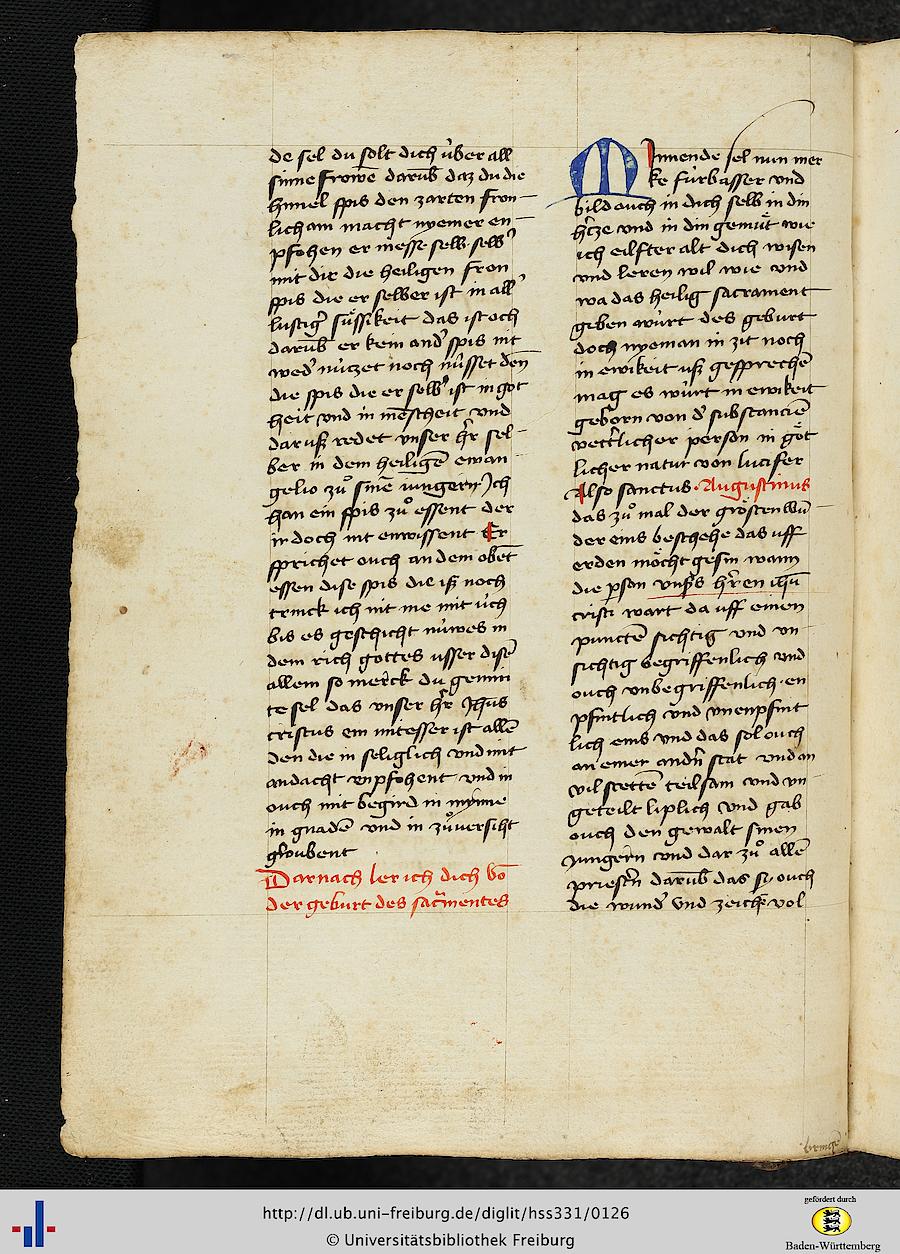 de sel du solt dich über all
sinne frowē darub̄ daz du die
himel spis den zarten fron-
lich am macht nyemer en-
pfohen er messe selb selb᷒
mit dir die heiligen fron
spis die er selber ist in all᷒
lustig᷒ süssikeit das ist och
darūb er kein and᷒ spis nit
wed᷒ nüczet noch nüsset den̄
die spis die er selb᷒ ist in got
heit vnd in mēscheit vnd
daruß redet vnser h᷒r sel-
ber in dem heiligē ewan-
gelio zuͦ sinē iungern Ich
han ein spis zuͦ essent der
ir doch nit enwissent Er
sprichet ouch an dem obēt
essen dise spis die iß noch
trinck ich nit me mit üch
bis es geschicht nüwes in
dem rich gottes usser disē
allem so merck du gemin
te sel das vnser h᷒r Jh̄us
cristus ein mitesser ist allē
den die in seliglich vnd mit
andacht vnpfohent vnd in
ouch mit begird in mynne
in gnadē vnd in zuͦversiht
gloubent
Darnach ler ich dich vō
der geburt des sacr̄mentes
Minnende sel nun mer
ke fürbasser vnd
bild ouch in dich selb in din
h᷒cze vnd in din gemüt wie
ich eilfter alt dich wisen
vnd leren wil wie vnd
wa das heilig sacrament
geben würt des geburt
doch nyeman in zit noch
in ewikeit uß gesprechē
mag es würt in ewikeit
geborn von d᷒ substanciē
vett᷒licher person in göt
licher natur von lucifer
Also sanctus Augustinus
das zuͦ mal der grösten wū-
der eins beschehe das uff
erden möcht gesin wann
die pson vnß᷒s h᷒ren ih̄u
cristi wart da uff einen
punctē sichtig vnd vn-
sichtig begriffenlich vnd
ouch vnbegriffenlich en
pfintlich vnd vnenpfint
lich eins vnd das sol ouch
an einer and᷒n stat vnd an
vil stettē teilsam vnd vn-
geteilt liplich vnd gab
ouch den gewalt sinen
Jungern vnd dar zuͦ allē
priest᷒n darub̄ das sy ouch
die wund᷒ vnd zeichē vol
http://dl.ub.uni-freiburg.de/diglit/hss331/0126
© Universitätsbibliothek Freiburg
gefördert durch
Baden-Württemberg